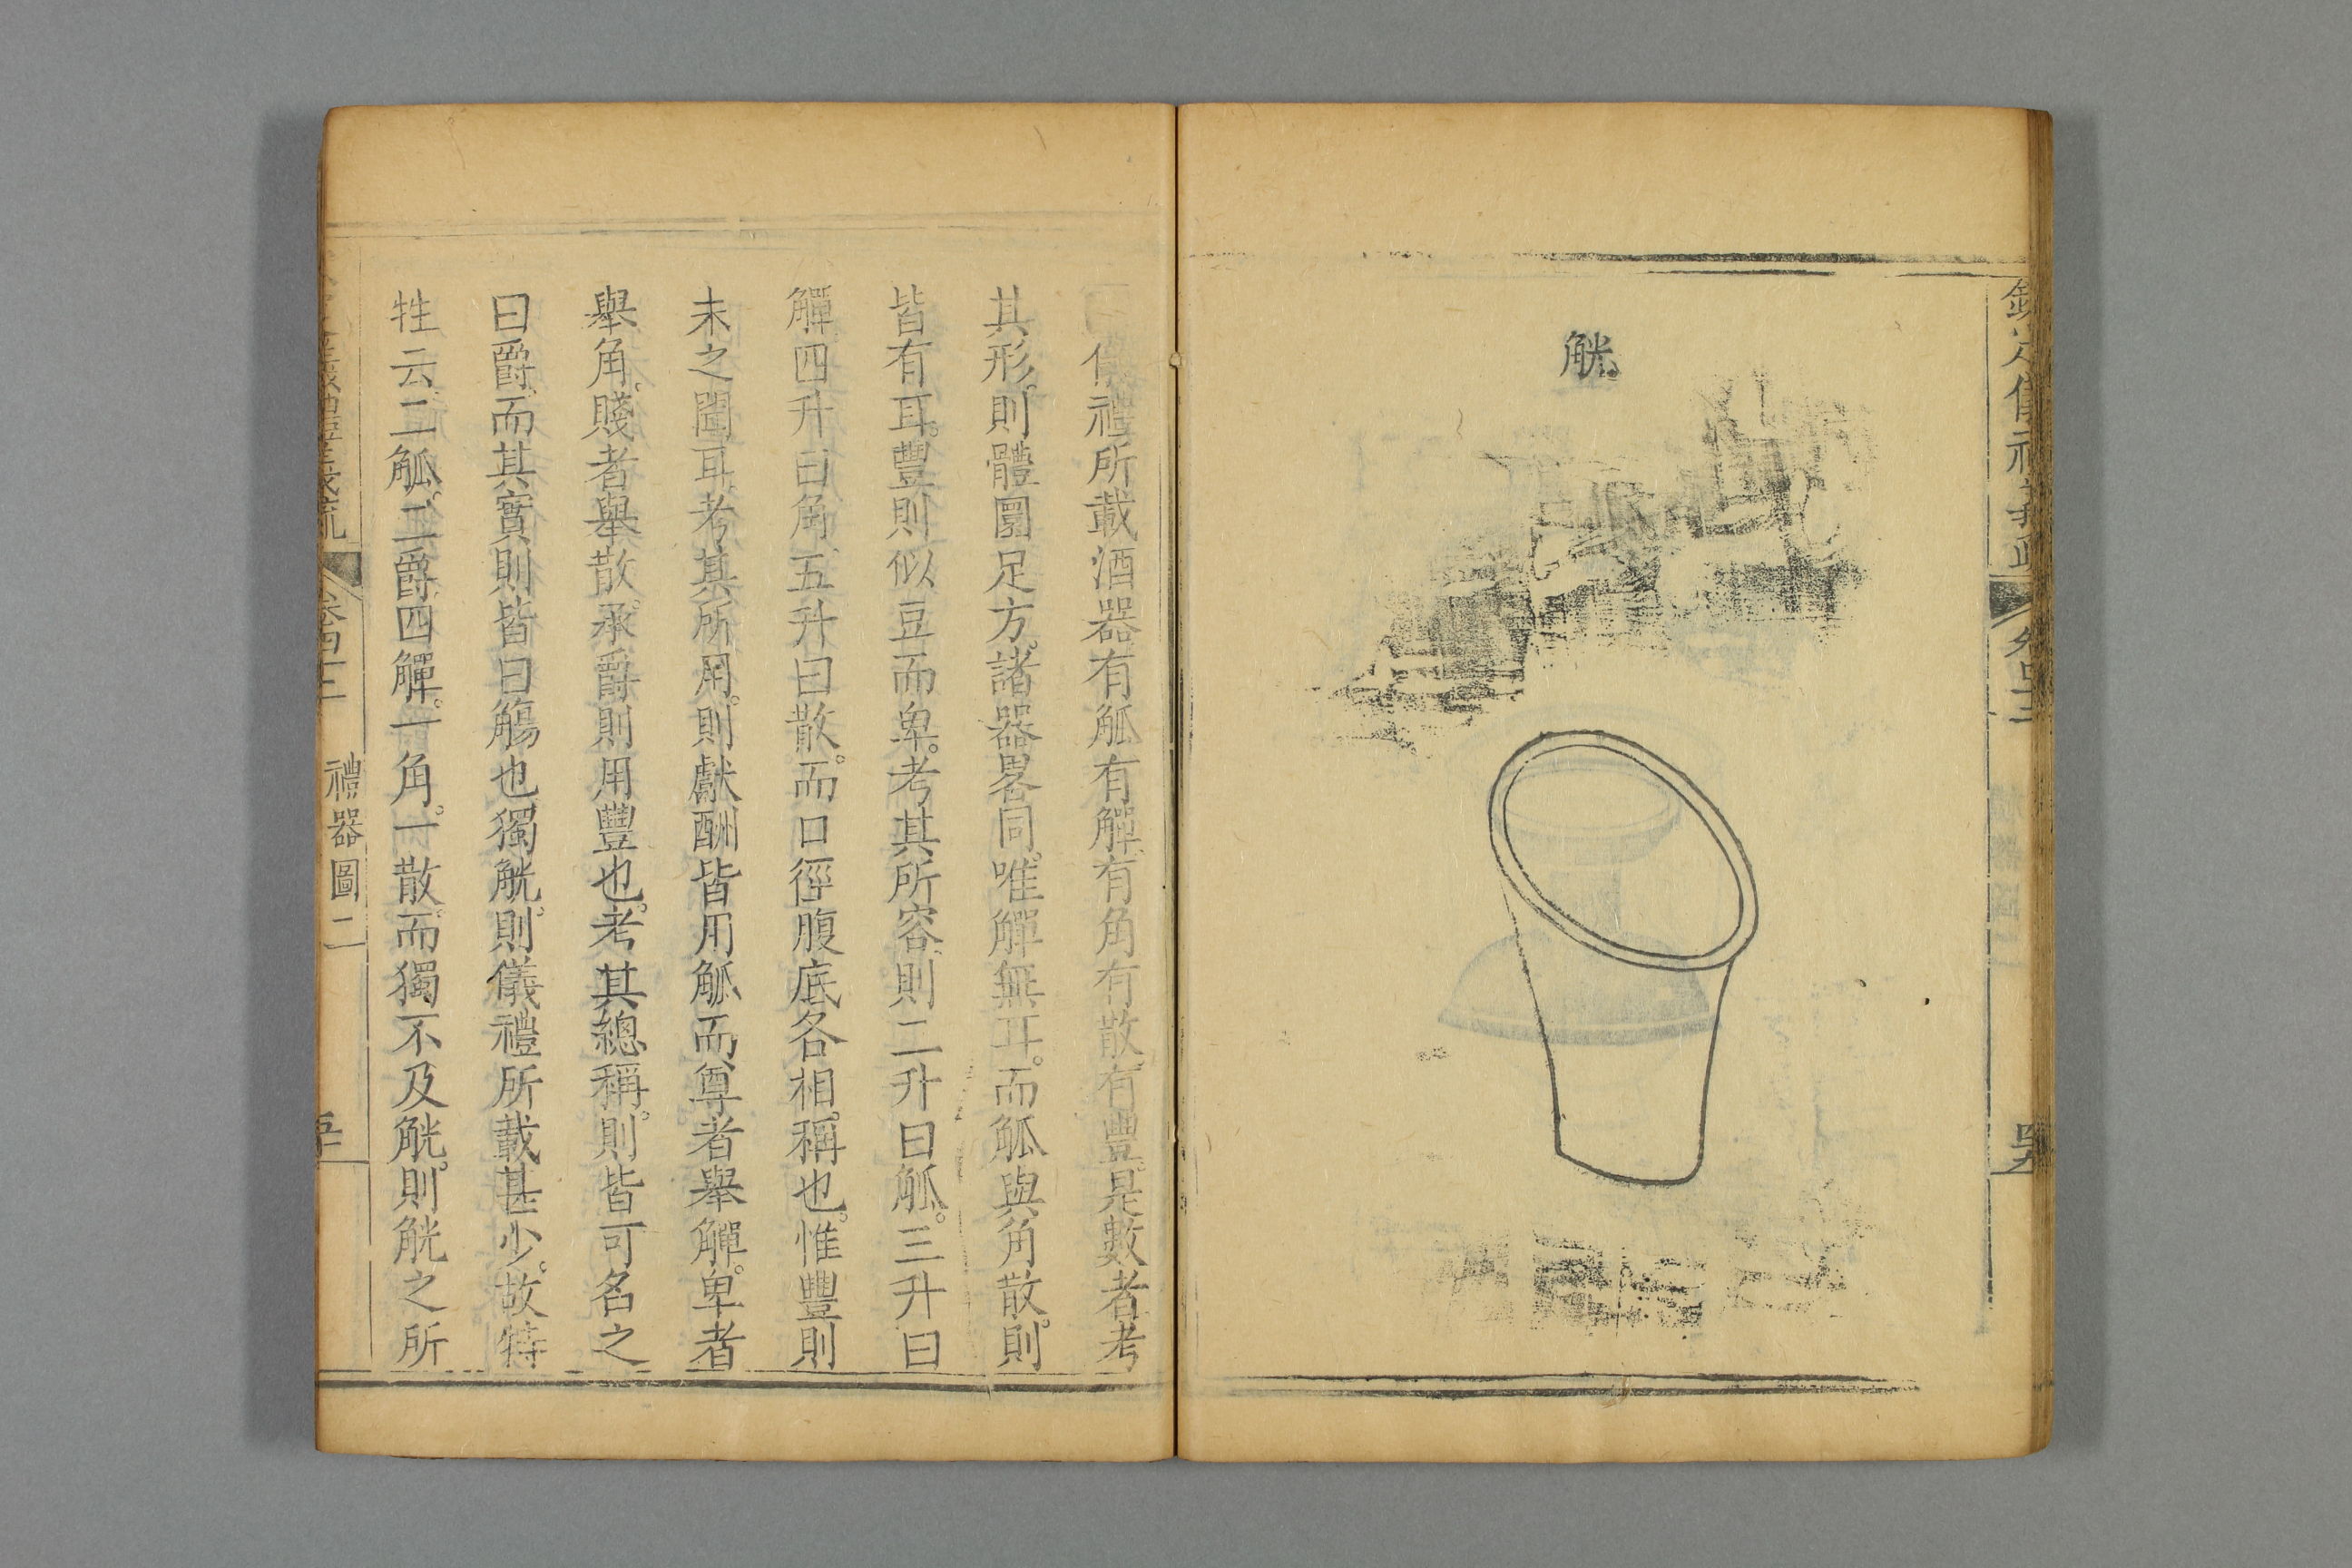 觥
儀禮所載酒器有觚有觶有角有散有豐是數者考
其形則體圜足方諸器畧同唯觶無耳而觚與角散則
皆有耳豐則似豆而卑考其所容則二升曰觚三升曰
觶四升曰角五升曰散而口徑腹底各相稱也惟豐則
未之聞耳考其所用則獻酬皆用觚而尊者舉觶卑者
舉角賤者舉散承爵則用豐也考其總稱則皆可名之
曰爵而其實則皆曰觴也獨觥則儀禮所載甚少故特
牲云二觚二爵四觶一角一散而獨不及觥則觥之所
儀禮義疏 卷四十二 禮器圖二